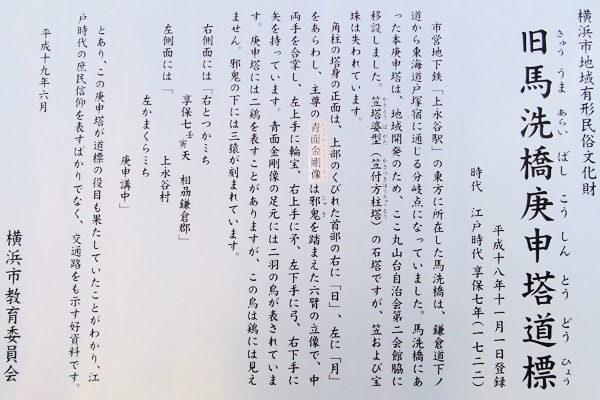 横浜市地域有形民俗文化財
旧馬洗橋庚申塔道標
きゅう うま あらい ばし こう しん とう どう ひょう
平成十八年十一月一日登録
時代　江戸時代 享保七年(一七二二)
市営地下鉄「上永谷駅」の東方に所在した馬洗橋は、鎌倉道下ノ
道から東海道戸塚宿に通じる分岐点になっていました。馬洗橋にあ
った本庚申塔は、地域開発のため、ここ丸山台自治会第二会館脇に
移設しました。笠塔婆型(笠付方柱塔)の石塔ですが、笠および宝
珠は失われています。
角柱の塔身の正面は、上部のくびれた首部の右に「日」、左に「月」
をあらわし、主尊の青面金剛像は邪鬼を踏まえた六臂の立像で、中
両手を合掌し、左上手に輪宝、右上手に矛、左下手に弓、右下手に
矢を持っています。青面金剛像の足元には二羽の鳥が表されていま
す。庚申塔には二鶏を表すことがありますが、この鳥は鶏には見え
ません。邪鬼の下には三猿が刻まれています。
右側面には「右とつかミち
享保七壬寅天　相刕鎌倉郡」
左側面には「　　　上永谷村
左かまくらミち
庚申講中」
とあり、この庚申塔が道標の役目も果たしていたことがわかり、江
戸時代の庶民信仰を表すばかりでなく、交通路をも示す好資料です。
平成十九年六月
横浜市教育委員会